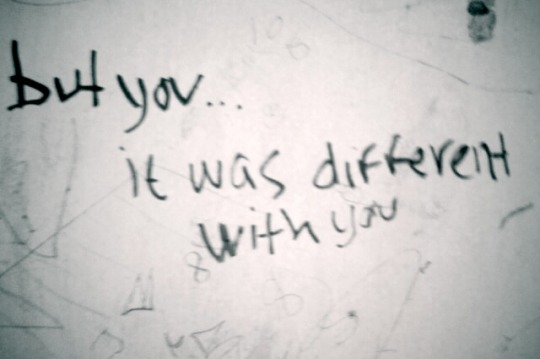 but you...
it was different
with you
8